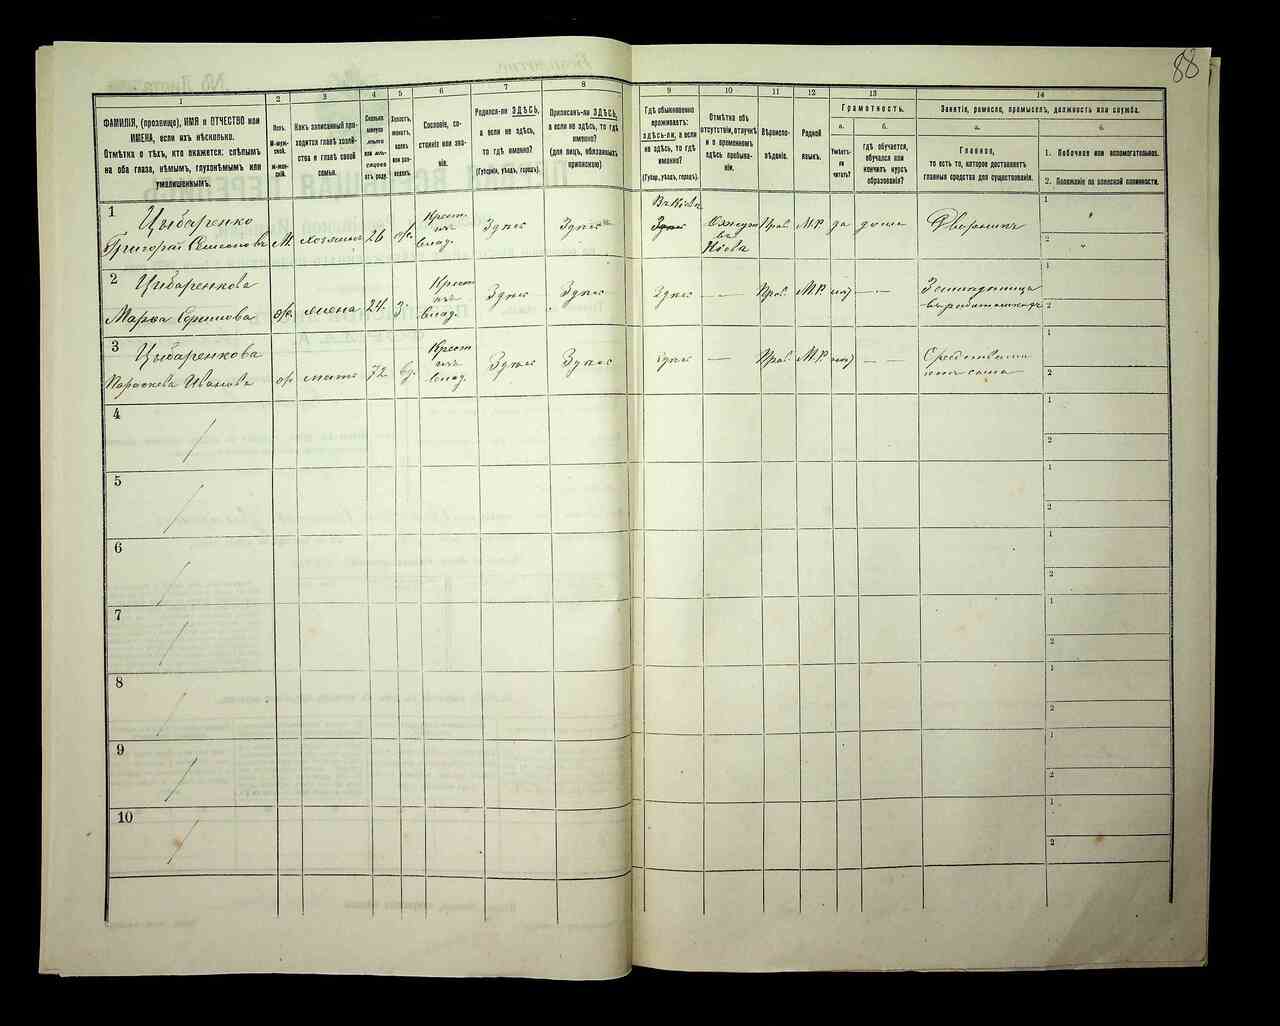 88
1
2
3
4
5
6
7
8
9
10
11
12
13
14
ФАМИЛІЯ, (прозвище), ИМЯ и ОТЧЕСТВО или
ИМЕНА, если ихъ нѣсколько.
Отмѣтка о тѣхъ, кто окажется: слѣпымъ
на оба глаза, нѣмымъ, глухонѣмымъ или
умалишеннымъ.
Полъ.
М-муж-
ской.
Ж-жен-
скій.
Какъ записанный при-
ходится главѣ хозяй-
ства и главѣ своей
семьи.
Сколько
минуло
лѣтъ
или мѣ-
сяцевъ
отъ роду.
Холостъ,
женатъ,
вдовъ
или раз-
веденъ.
Сословіе, со-
стояніе или зва-
ніе.
Родился-ли ЗДѢСЬ,
а если не здѣсь,
то гдѣ именно?
(Губернія, уѣздъ, городъ).
Приписанъ-ли ЗДѢСЬ,
а если не здѣсь, то гдѣ
именно?
(для лицъ, обязанныхъ
припискою)
Гдѣ обыкновенно
проживаетъ:
здѣсь-ли, а если
не здѣсь, то гдѣ
именно?
(Губер., уѣздъ, городъ).
Отмѣтка объ
отсутствіи, отлучкѣ
и о временномъ
здѣсь пребыва-
ніи.
Вѣроиспо-
вѣданіе.
Родной
языкъ.
Грамотность.
а.
Умѣетъ-
ли
читать?
б.
гдѣ обучается,
обучался или
кончилъ курсъ
образованія?
Занятіе, ремесло, промыселъ, должность или служба.
а.
Главное,
то есть то, которое доставляетъ
главныя средства для существованія.
б.
1. Побочное или вспомогательное.
2. Положеніе по воинской повинности.
1
Цыбаренко
Григорій Семеновъ
М
хозяинъ
26
ж.
Крест.
изъ
влад.
Здѣсь
Здѣсь
Въ Кіевѣ
Здѣсь
Кіева
Прав.
М.Р.
да
дома
Дворникъ
1
2
2
Цибаренкова
Марфа
ж.
жена
24
з.
Крест
изъ
влад.
Здѣсь
Здѣсь
Здѣсь
— —
Прав.
М.Р.
нѣтъ
— —
1
2
3
Цыбаренкова
Параскева Иванова
ж
мать
72
вд.
Крест
изъ
влад.
Здѣсь
Здѣсь
Здѣсь
—
Прав.
М.Р.
нѣтъ
— —
1
2
4
1
2
5
1
2
6
1
2
7
1
2
8
1
2
9
1
2
10
1
2